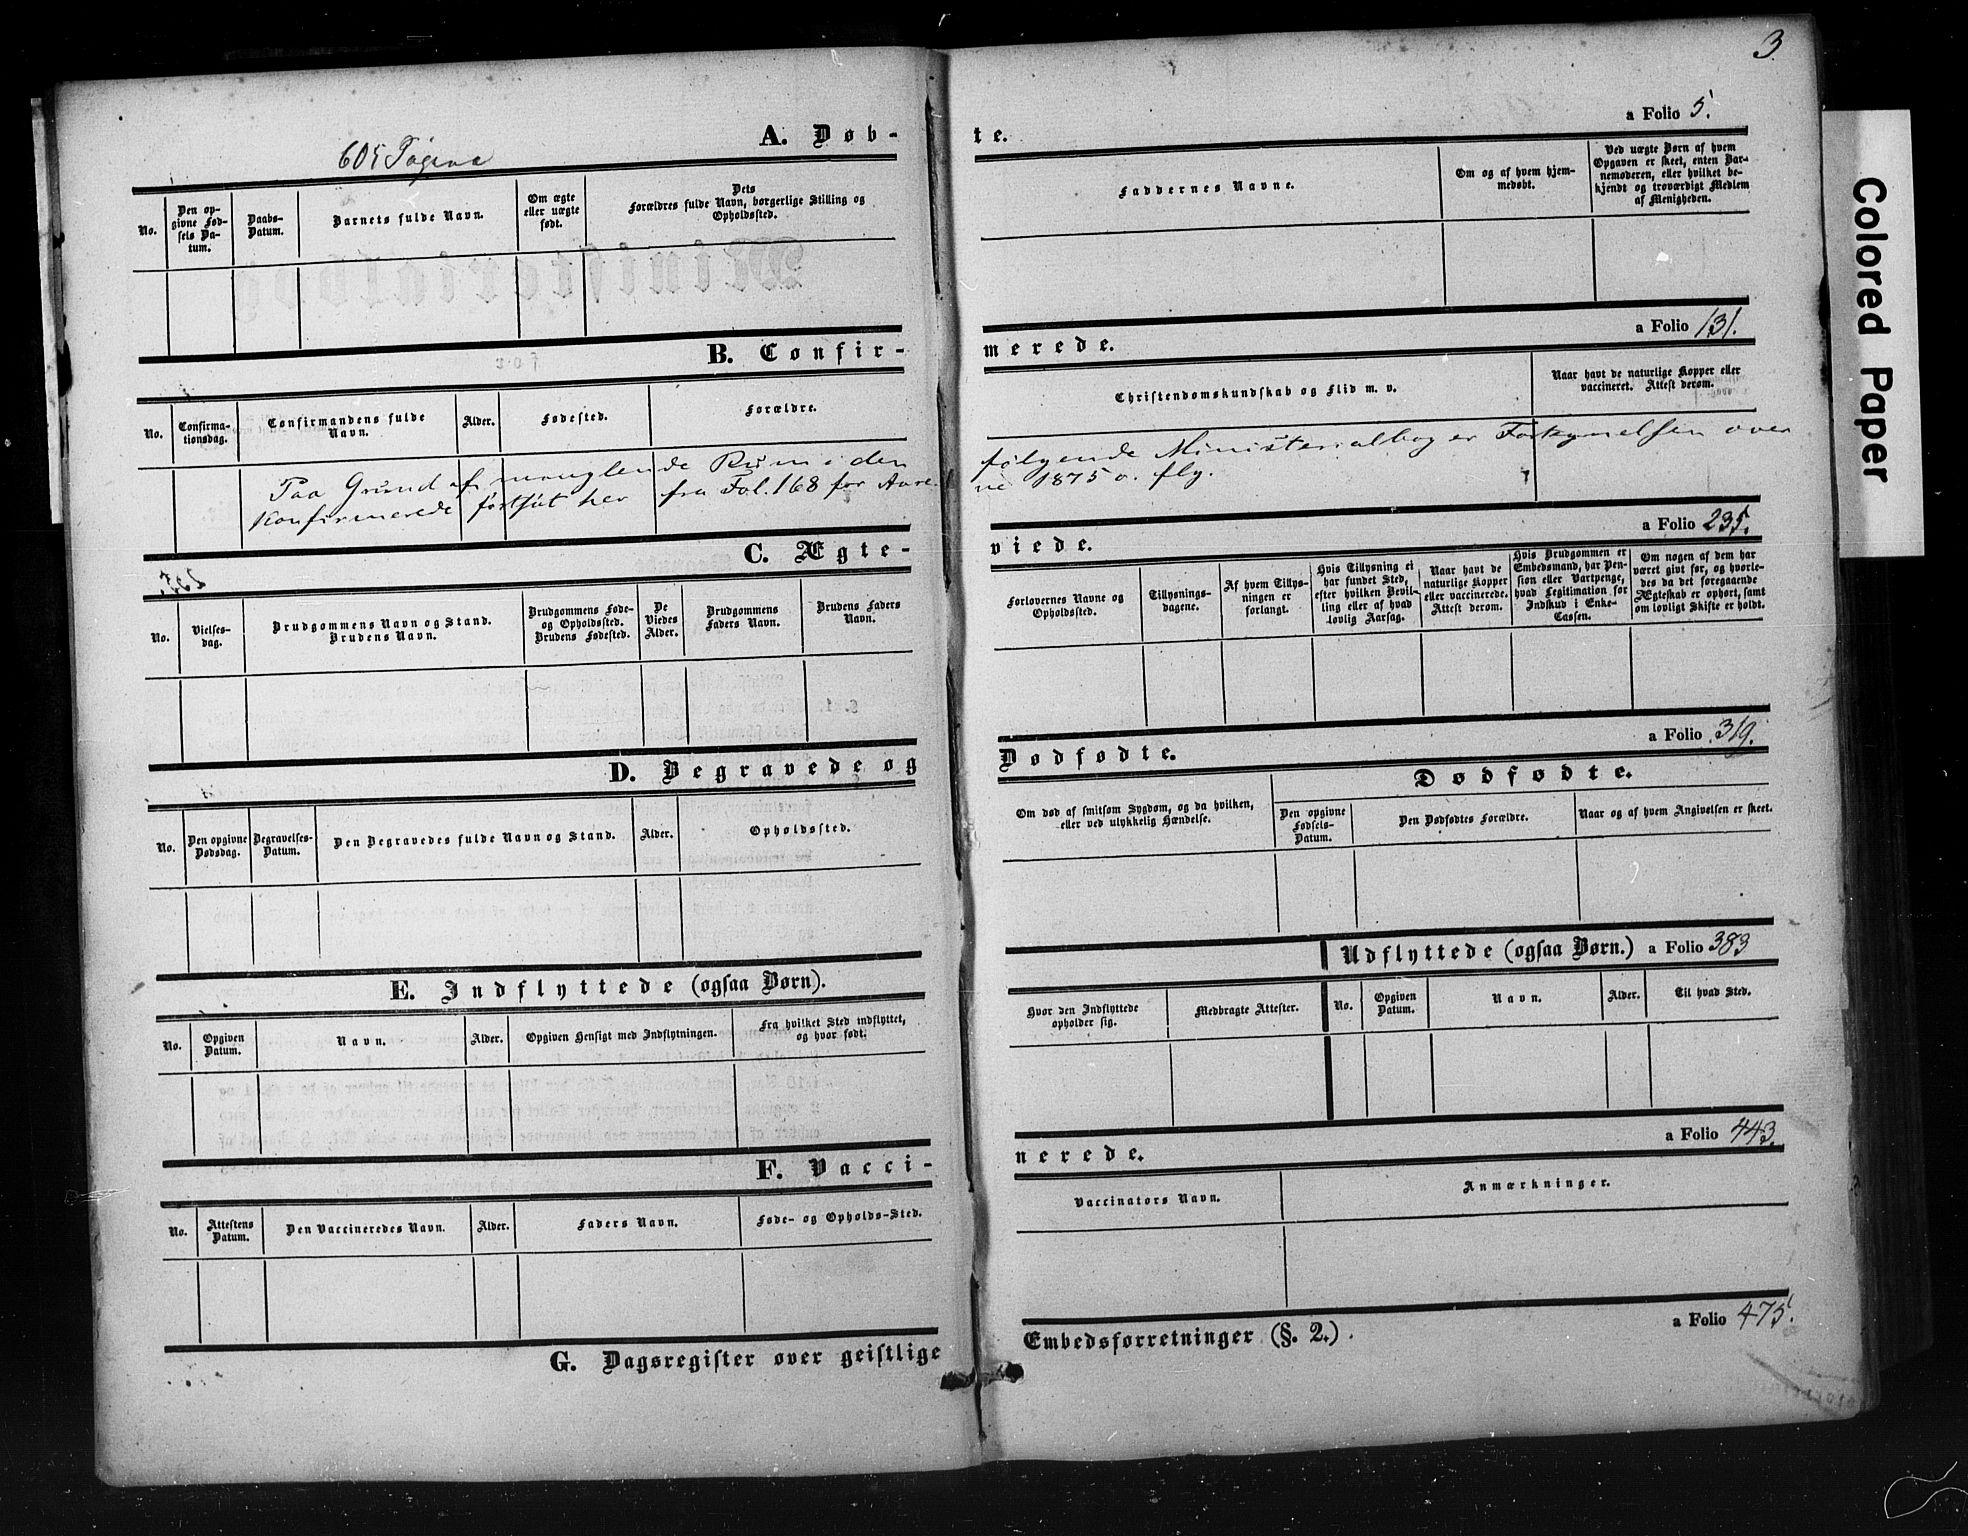 3
605 Pagina
A. Døb-
te.
a Folio 5.
No.
Den op-
givne Fød-
sels Da-
tum.
Daabs-
Datum.
Barnets fulde Navn.
Om ægte
eller uægte
født.
Dets
Forældres fulde Navn, borgerlige Stilling og
Opholdssted.
Faddernes Navne.
Om og af hvem hjem-
medøbt.
Ved uægte Børn af hvem
Opgaven er skeet, enten Bar-
nemoderen, eller hvilket be-
kjendt og troværdigt Medlem
af Menigheden.
B. Confir-
merede.
a Folio 131.
No.
Confirma-
tionsdag.
Confirmandens fulde
Navn.
Alder.
Fødested.
Forældre.
Christendomskundskab og Flid m. v.
Naar havt de naturlige Kopper eller
vaccineret. Attest derom.
Paa Grund af manglende Rum i den følgende Ministerialbog er Forkyndelsen over
Konfirmerede fortsat her fra Fol. 168 for Aarene 1875 o. flg.
C. Ægte-
viede.
a Folio 235.
No.
Vielses-
dag.
Brudgommens Navn og Stand.
Brudens Navn.
Brudgommens Føde-
og Opholdssted.
Brudens Fødested.
De
Viedes
Alder.
Brudgommens
Faders Navn.
Brudens Faders
Navn.
Forlovernes Navne og
Opholdssted.
Tillysnings-
dagene.
Af hvem Tillys-
ningen er
forlangt.
Hvis Tillysning ei
har fundet Sted,
efter hvilken Bevil-
ling eller af hvad
lovlig Aarsag.
Naar havt de
naturlige Kopper
eller vaccinerede.
Attest derom.
Hvis Brudgommen er
Embedsmand, har Pen-
sion eller Vartpenge,
hvad Legitimation for
Indskud i Enke-
Cassen.
Om nogen af dem har
været givt før, og hvorle-
des da det foregaaende
Ægteskab er ophørt, samt
om lovligt Skifte er holdt.
D. Begravede og
Dødfødte.
a Folio 319.
No.
Den opgivne
Dødsdag.
Begravelses-
Datum.
Den Begravedes fulde Navn og Stand.
Alder.
Opholdssted.
Om død af smitsom Sygdom, og da hvilken,
eller ved ulykkelig Hændelse.
Dødfødte.
Den opgivne
Fødsels-
Datum.
Den Dødfødtes Forældre.
Naar og af hvem Angivelsen er skeet.
E. Indflyttede (ogsaa Børn).
Udflyttede (ogsaa Børn.) a Folio 383
No.
Opgiven
Datum.
Navn.
Alder.
Opgiven Hensigt med Indflytningen.
Fra hvilket Sted indflyttet,
og hvor født.
Hvor den Indflyttede
opholder sig.
Medbragte Attester.
No.
Opgiven
Datum.
Navn.
Alder.
Til hvad Sted.
F. Vacci-
nerede.
a Folio 443.
No.
Attestens
Datum.
Den Vaccineredes Navn.
Alder.
Faders Navn.
Føde- og Opholds-Sted.
Vaccinators Navn.
Anmærkninger.
G. Dagsregister over geistlige
Embedsforretninger (§. 2.).
a Folio 475.
Colored Paper